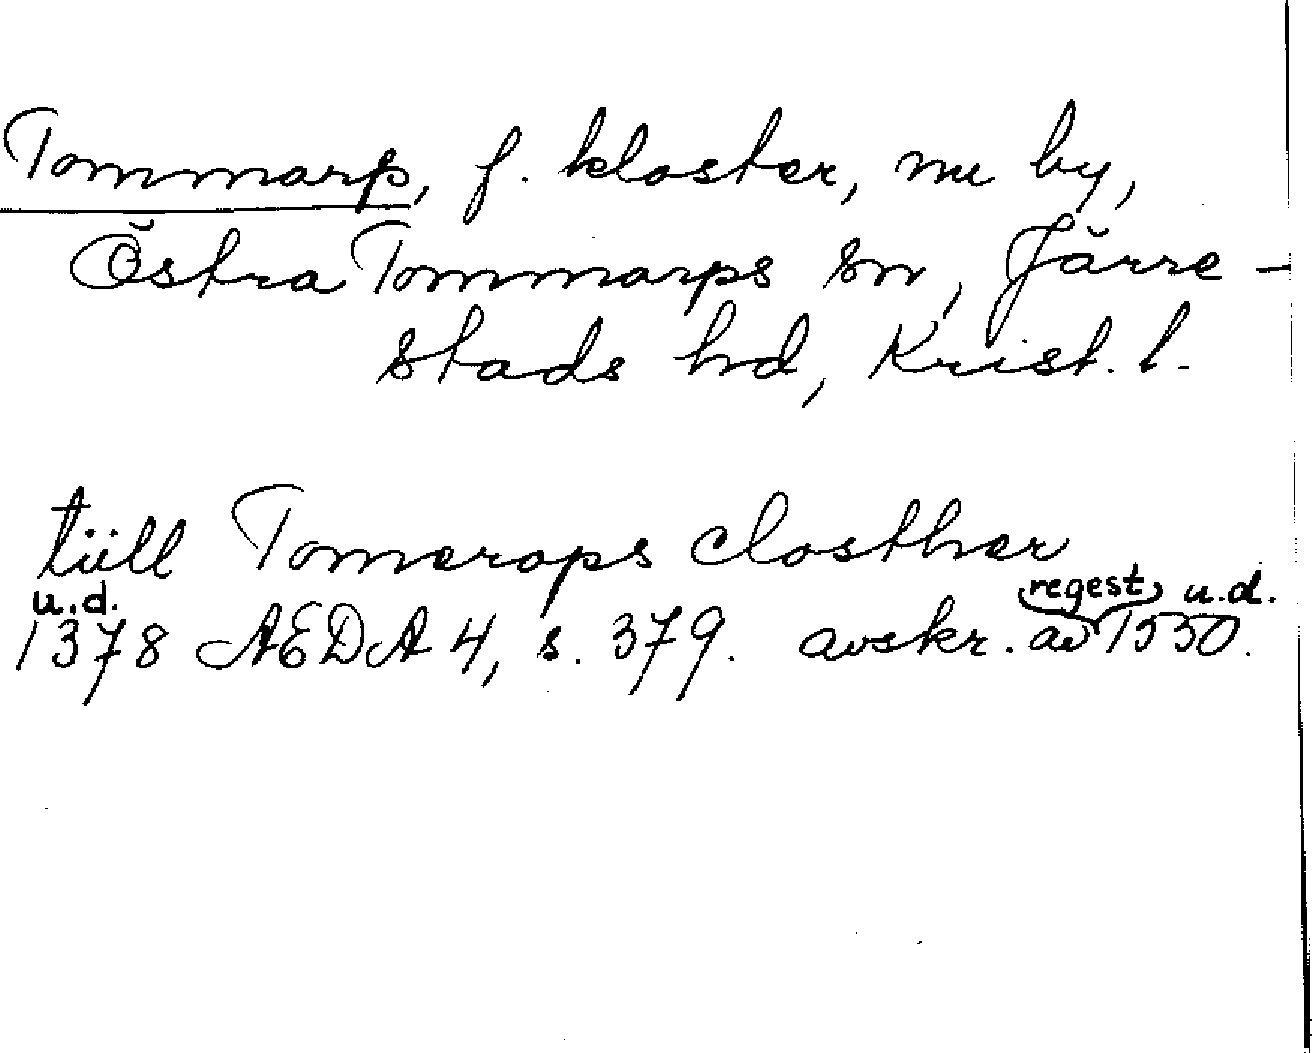 Tommarp, f. kloster, nu by,
Östra Tommarps sn, Järre-
stads hd, Krist. l.
tüll Tomerops closther
u.d. regest u.d.
1378 AEDA 4, s. 379. avskr. av 1550.